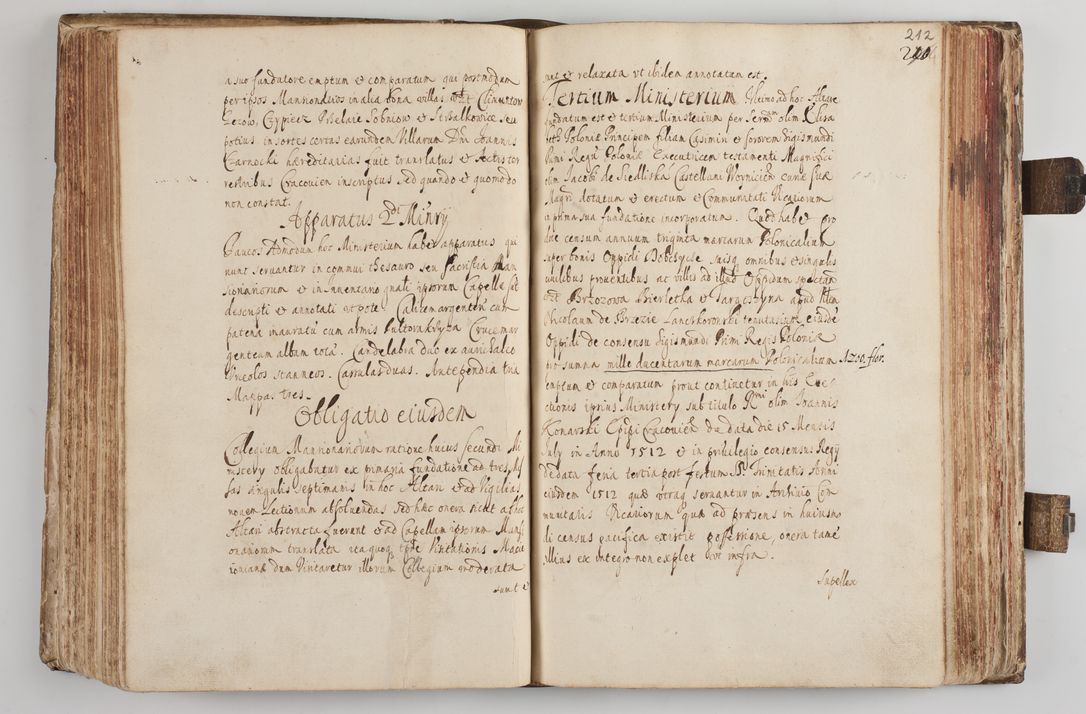 a suo fundatore emptum et comparatum qui postmodum
per ipsos Mansionarios in alia bona villas
Czypiecz Sobniow et Strzalkowice seu
potius in sortes certas earundem Villarum Dni Joannis
Czarnocki hereditarias fuit translatus et Actis ter
restribus Cracovien inscriptus sed quando et quomodo
non constat.
Apparatus 2di Minrij
Paucos Admodum hoc Ministerium habet apparatus qui
nunc servantur in commui thesauro seu sacristia Man
sionariorum et in Inventario gnali ipsorum Capelle st
descripti et annotati ut pote. Calicem argenteu cum
patena inauratu cum armis Crucem ar
genteam albam tota. Candelabra duo ex aurichalco
stanneos. Casulas duas. Antependia tria
Mappas tres.
Obligatio eiusdem
Collegium Mansionariorum ratione huius secundi Mi
nisterij obligabatur ex primaria fundatione ad tres Mis
sas singulis septimanis in hoc Altari et ad Vigilias
novem Lectionum absoluendas sed hæc onera sicut ab hoc
Altari abstracta fuerant et ad Capellam ipsorum Mansi
onariorum translata ita quoq tpre Visitationis Macie
ioviane dum Visitaretur illorum Collegium moderata
sunt et
212
nec et relaxata vt ibidem annotatum est.
Tertium Ministerium. Ultimo ad hoc Altare
fundatum est et tertium Ministerium per Sermam olim Elisa
beth Poloniæ Principem filiam Casimiri et sororem Sigismundi
Primi Regu Poloniæ Executricem testamenti Magnifici
olim Jacobi de Siedliska Castellani Woynicien curie suæ
Magri dotatum et erectum et Communitati Vicariorum
in prima sua fundatione incorporatum. Quod habet pro
dote censum annuum triginta marcarum Polonicalium
super bonis Oppidi Bobczycze suisq omnibus et singulis
utilibus proventibus ac villis ad illud Oppidum spectan
Brzozowa et Taraszyna apud
Nicolaum de Brzezie Lanczkoronski tenutarium eiusde
Oppidi de consensu Sigismundi Primi Regis Poloniæ
pro summa mille ducentarum marcarum Polonicalium 1200. flor.
emptum et comparatum prout continetur in his Ere
ctionis ipsius Ministerij sub titulo Rmi olim Joannis
Konarski Epipi Cracovien de data die 15 Mensis
July in Anno 1512 et in privilegio consensus Regij
de data feria tertia post festum SS. Trinitatis Anni
eiusdem 1512 quæ servantur in Archivio Com
munitatis Vicariorum qua ad præsens in huiusmo
di census pacifica existit possessione, onera tame
illius ex integro non explet uti infra.
Supellex